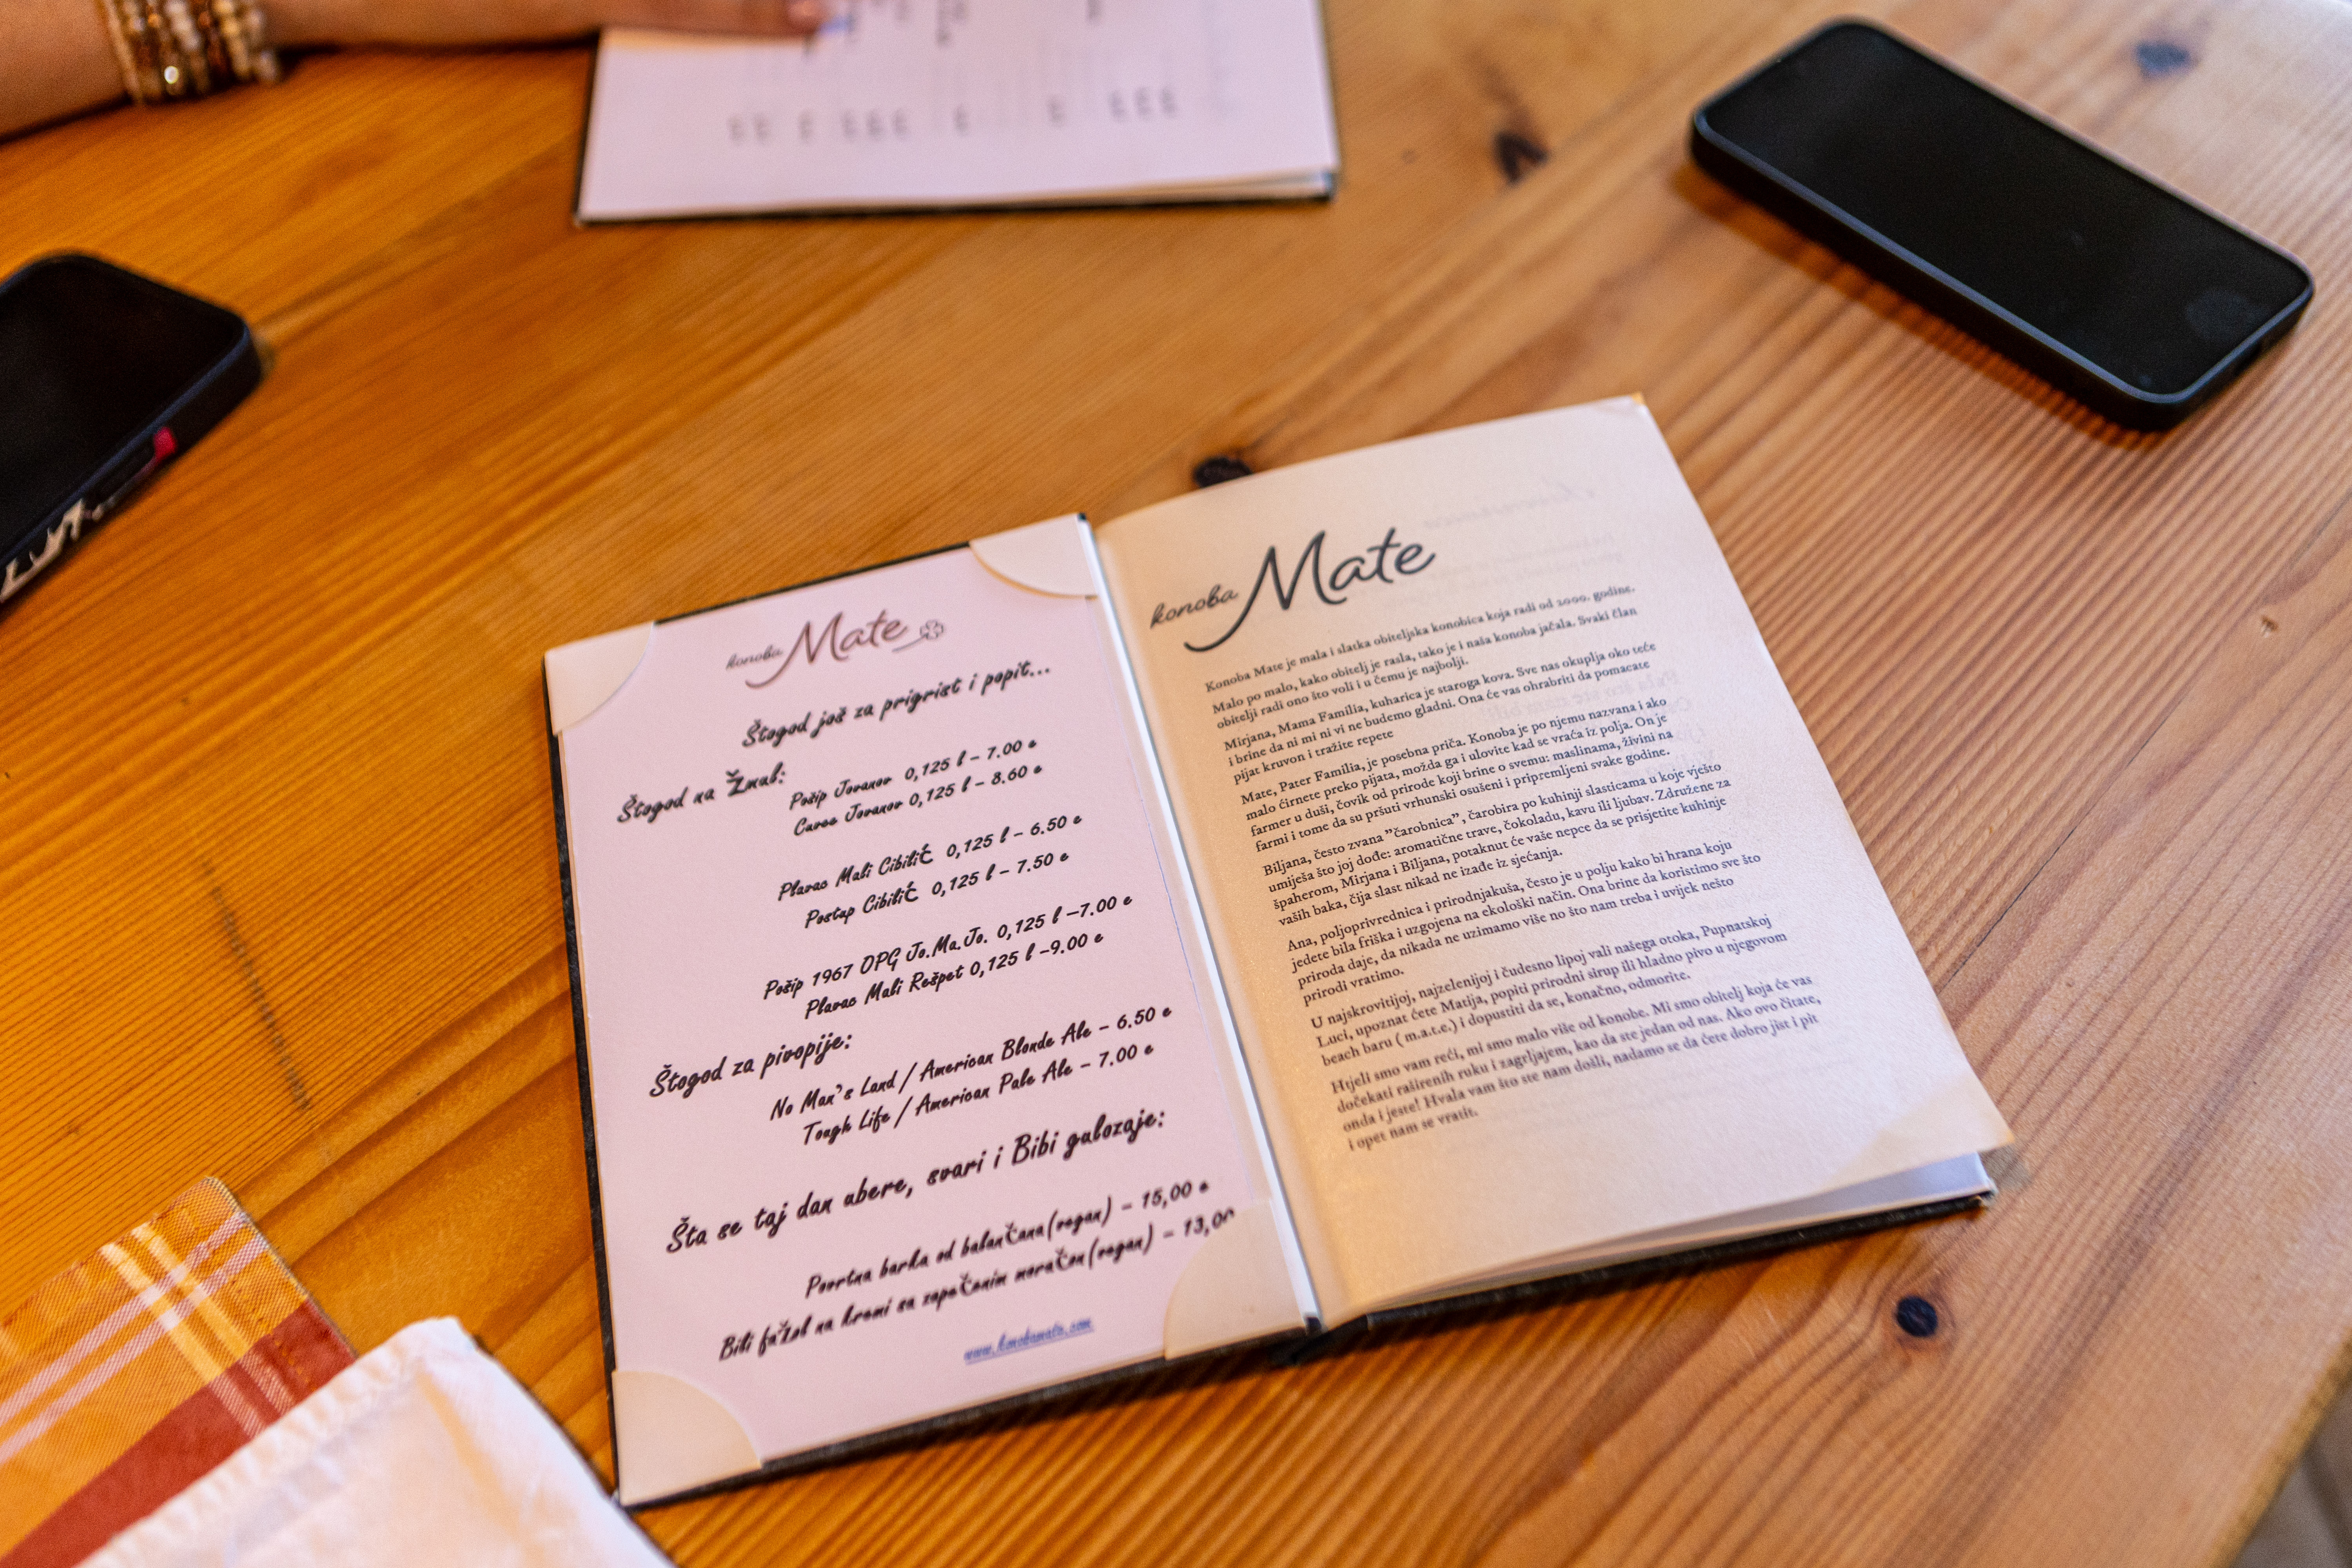 konoba Mate
Štogod još za prigrist i popit...
Štogod na Žmul:
Pošip Jovanov 0,125 l – 7.00 e
Cuvee Jovanov 0,125 l – 8.60 e
Plavac Mali Cibilić 0,125 l – 6.50 e
Postup Cibilić 0,125 l – 7.50 e
Pošip 1967 OPG Jo.Ma.Jo. 0,125 l –7.00 e
Plavac Mali Rešpet 0,125 l –9.00 e
Štogod za pivopije:
No Man's Land / American Blonde Ale – 6.50 e
Tough Life / American Pale Ale – 7.00 e
Šta se taj dan ubere, svari i Bibi gulozaje:
Povrtna barka od balančana(vegan) – 15,00 e
Bili fažol na kremi sa zapečenim moračon(vegan) – 13,00
www.konobamate.com
konoba Mate
Konoba Mate je mala i slatka obiteljska konobica koja radi od 2000. godine.
Malo po malo, kako obitelj je rasla, tako je i naša konoba jačala. Svaki član
obitelji radi ono što voli i u čemu je najbolji.
Mirjana, Mama Familia, kuharica je staroga kova. Sve nas okuplja oko teće
i brine da ni mi ni vi ne budemo gladni. Ona će vas ohrabriti da pomacate
pijat kruvon i tražite repete
Mate, Pater Familia, je posebna priča. Konoba je po njemu nazvana i ako
malo ćirnete preko pijata, možda ga i ulovite kad se vraća iz polja. On je
farmer u duši, čovik od prirode koji brine o svemu: maslinama, živini na
farmi i tome da su pršuti vrhunski osušeni i pripremljeni svake godine.
Biljana, često zvana "čarobnica", čarobira po kuhinji slasticama u koje vješto
umiješa što joj dođe: aromatične trave, čokoladu, kavu ili ljubav. Združene za
špaherom, Mirjana i Biljana, potaknut će vaše nepce da se prisjetite kuhinje
vaših baka, čija slast nikad ne izađe iz sjećanja.
Ana, poljoprivrednica i prirodnjakuša, često je u polju kako bi hrana koju
jedete bila friška i uzgojena na ekološki način. Ona brine da koristimo sve što
priroda daje, da nikada ne uzimamo više no što nam treba i uvijek nešto
prirodi vratimo.
U najskrovitijoj, najzelenijoj i čudesno lipoj vali našega otoka, Pupnatskoj
Luci, upoznat ćete Matija, popiti prirodni sirup ili hladno pivo u njegovom
beach baru ( m.a.t.e.) i dopustiti da se, konačno, odmorite.
Htjeli smo vam reći, mi smo malo više od konobe. Mi smo obitelj koja će vas
dočekati raširenih ruku i zagrljajem, kao da ste jedan od nas. Ako ovo čitate,
onda i jeste! Hvala vam što ste nam došli, nadamo se da ćete dobro jist i pit
i opet nam se vratit.